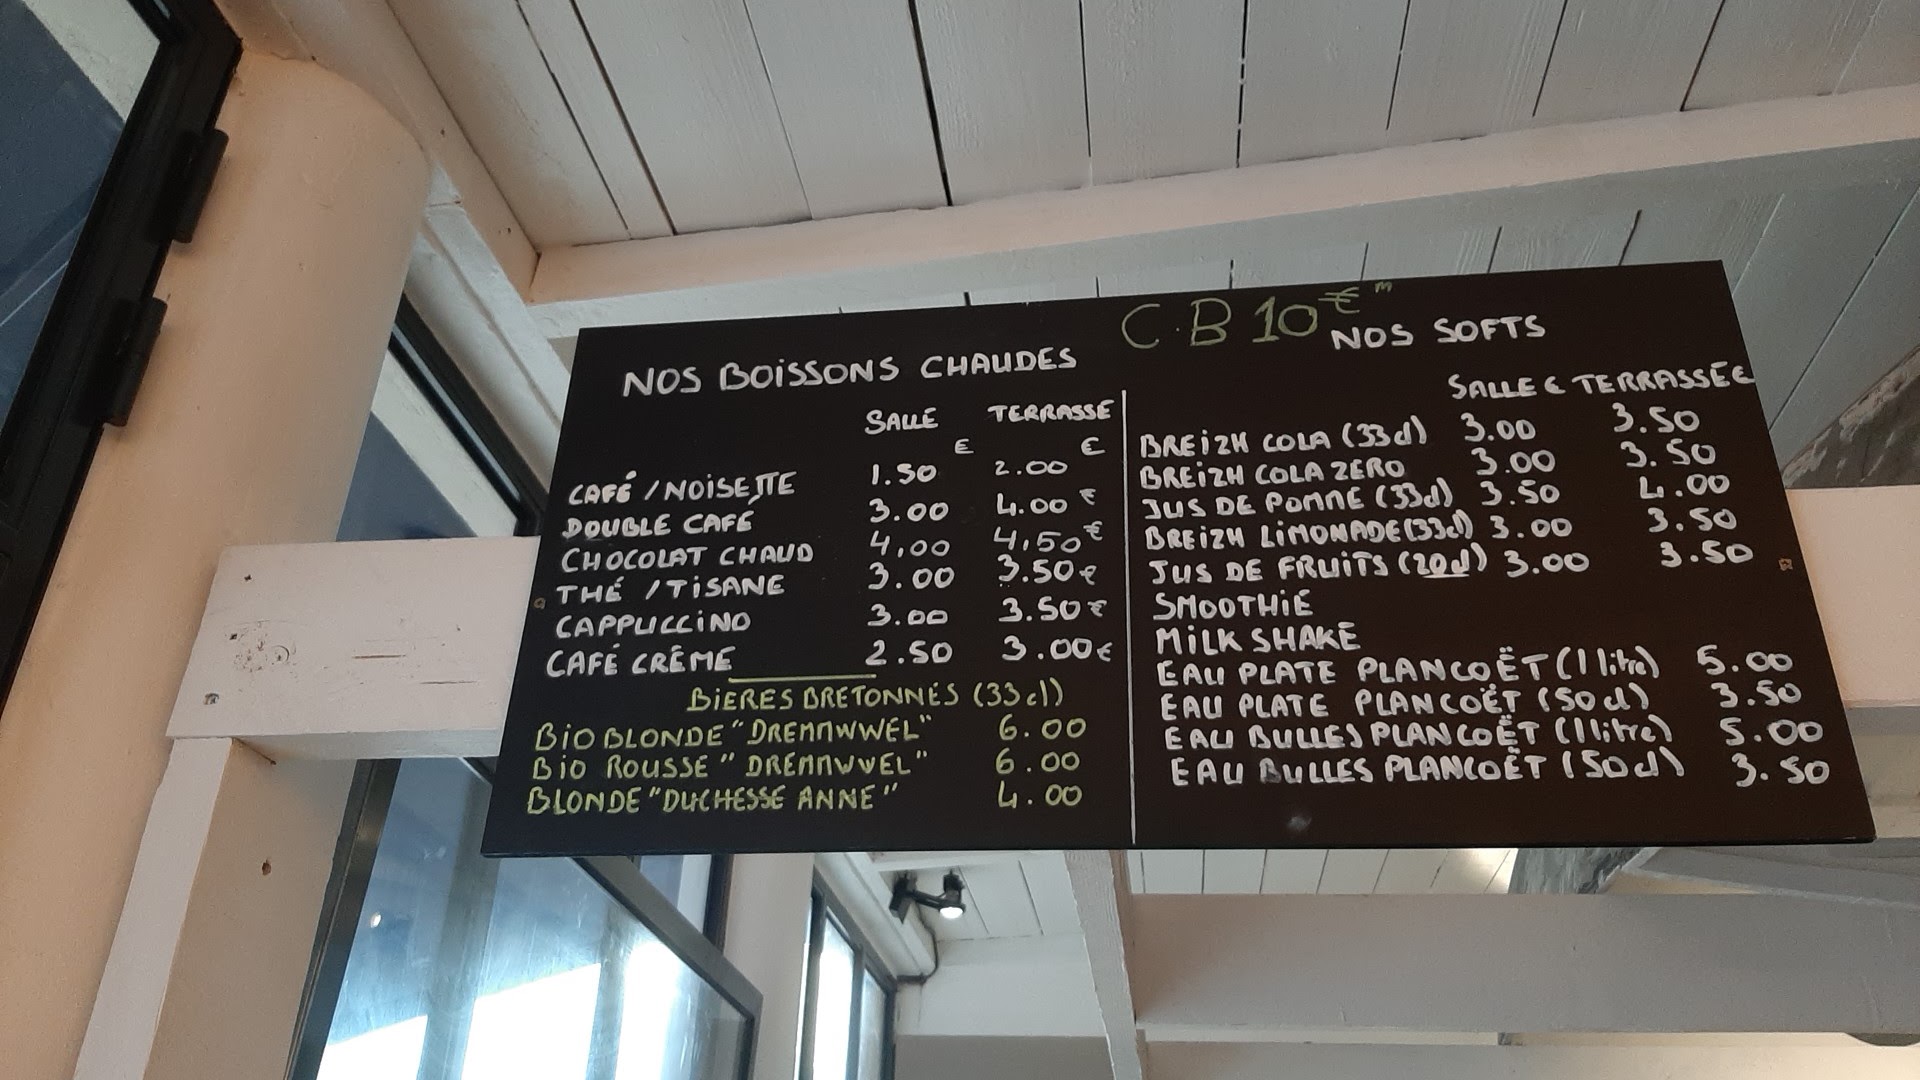 C.B 10€ m
NOS BOISSONS CHAUDES
SALLE TERRASSE
€ €
CAFÉ / NOISETTE 1.50 2.00
DOUBLE CAFÉ 3.00 4.00 €
CHOCOLAT CHAUD 4,00 4,50 €
THÉ / TISANE 3.00 3.50 €
CAPPUCCINO 3.00 3.50 €
CAFÉ CRÈME 2.50 3.00 €
BIERES BRETONNES (33cl)
BIO BLONDE "DREMMWWEL" 6.00
BIO ROUSSE "DREMMWWEL" 6.00
BLONDE "DUCHESSE ANNE" 4.00
NOS SOFTS
SALLE € TERRASSE €
BREIZH COLA (33cl) 3.00 3.50
BREIZH COLA ZERO 3.00 3.50
JUS DE POMME (33cl) 3.50 4.00
BREIZH LIMONADE (33cl) 3.00 3.50
JUS DE FRUITS (20cl) 3.00 3.50
SMOOTHIE
MILK SHAKE
EAU PLATE PLANCOËT (1 litre) 5.00
EAU PLATE PLANCOËT (50cl) 3.50
EAU BULLES PLANCOËT (1 litre) 5.00
EAU BULLES PLANCOËT (50cl) 3.50